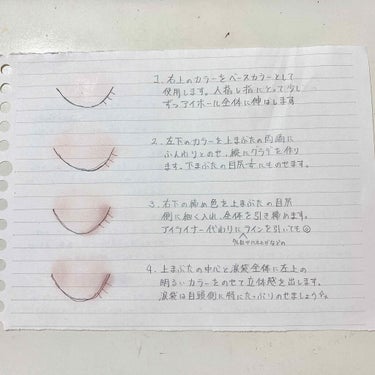 1. 右上のカラーをベースカラーとして
使用します。人指し指にとって少し
ずつアイホール全体に伸ばします
2. 左下のカラーを上まぶたの両端に
ふんわりとのせ、縦にグラデを作り
ます。下まぶたの目尻にものせます。
3. 右下の締め色を上まぶたの目尻
側に細く入れ、全体を引き締めます。
アイライナー代わりにラインを引いても◎
4. 上まぶたの中心と涙袋全体に左上の
明るいカラーをのせて立体感を出します。
涙袋は目頭側に特にたっぷりのせましょう